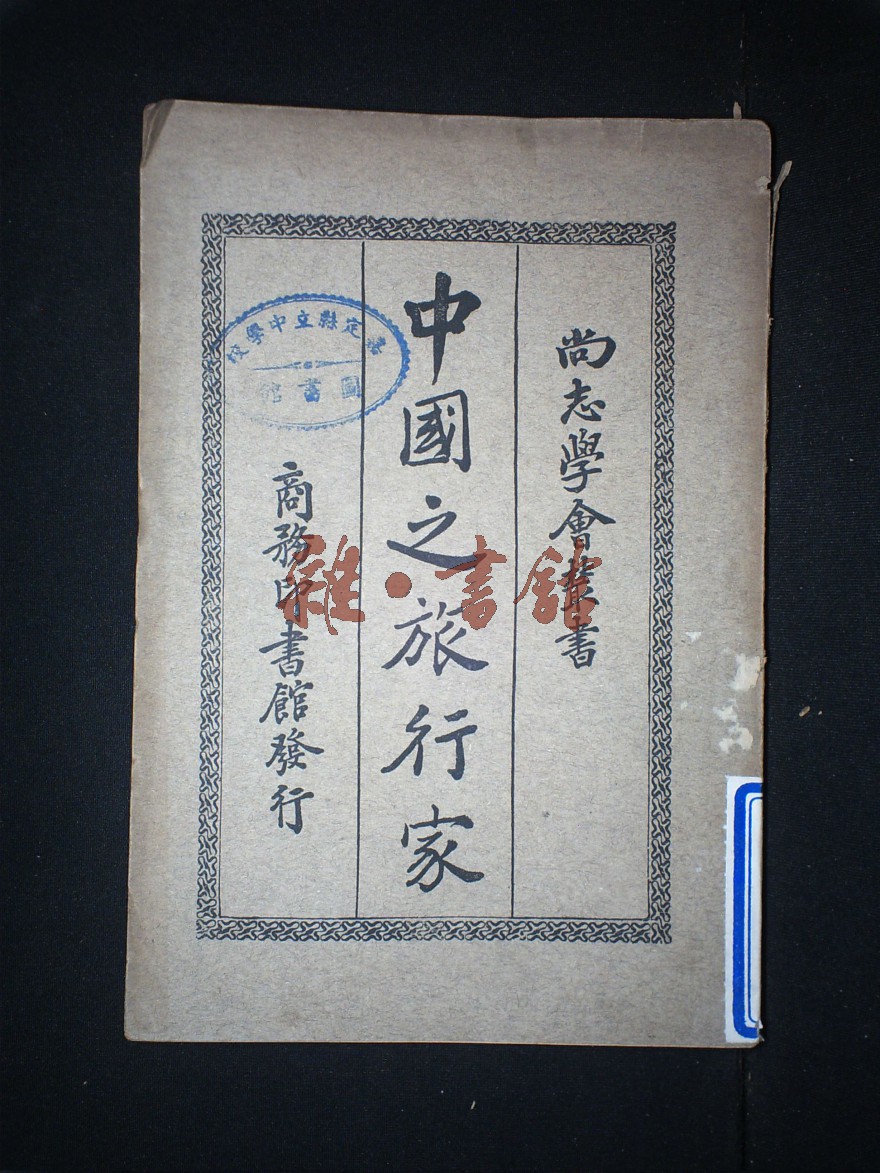 尚志學會叢書
中國之旅行家
商務印書館發行
定縣立中學校
圖書館
雜·書館